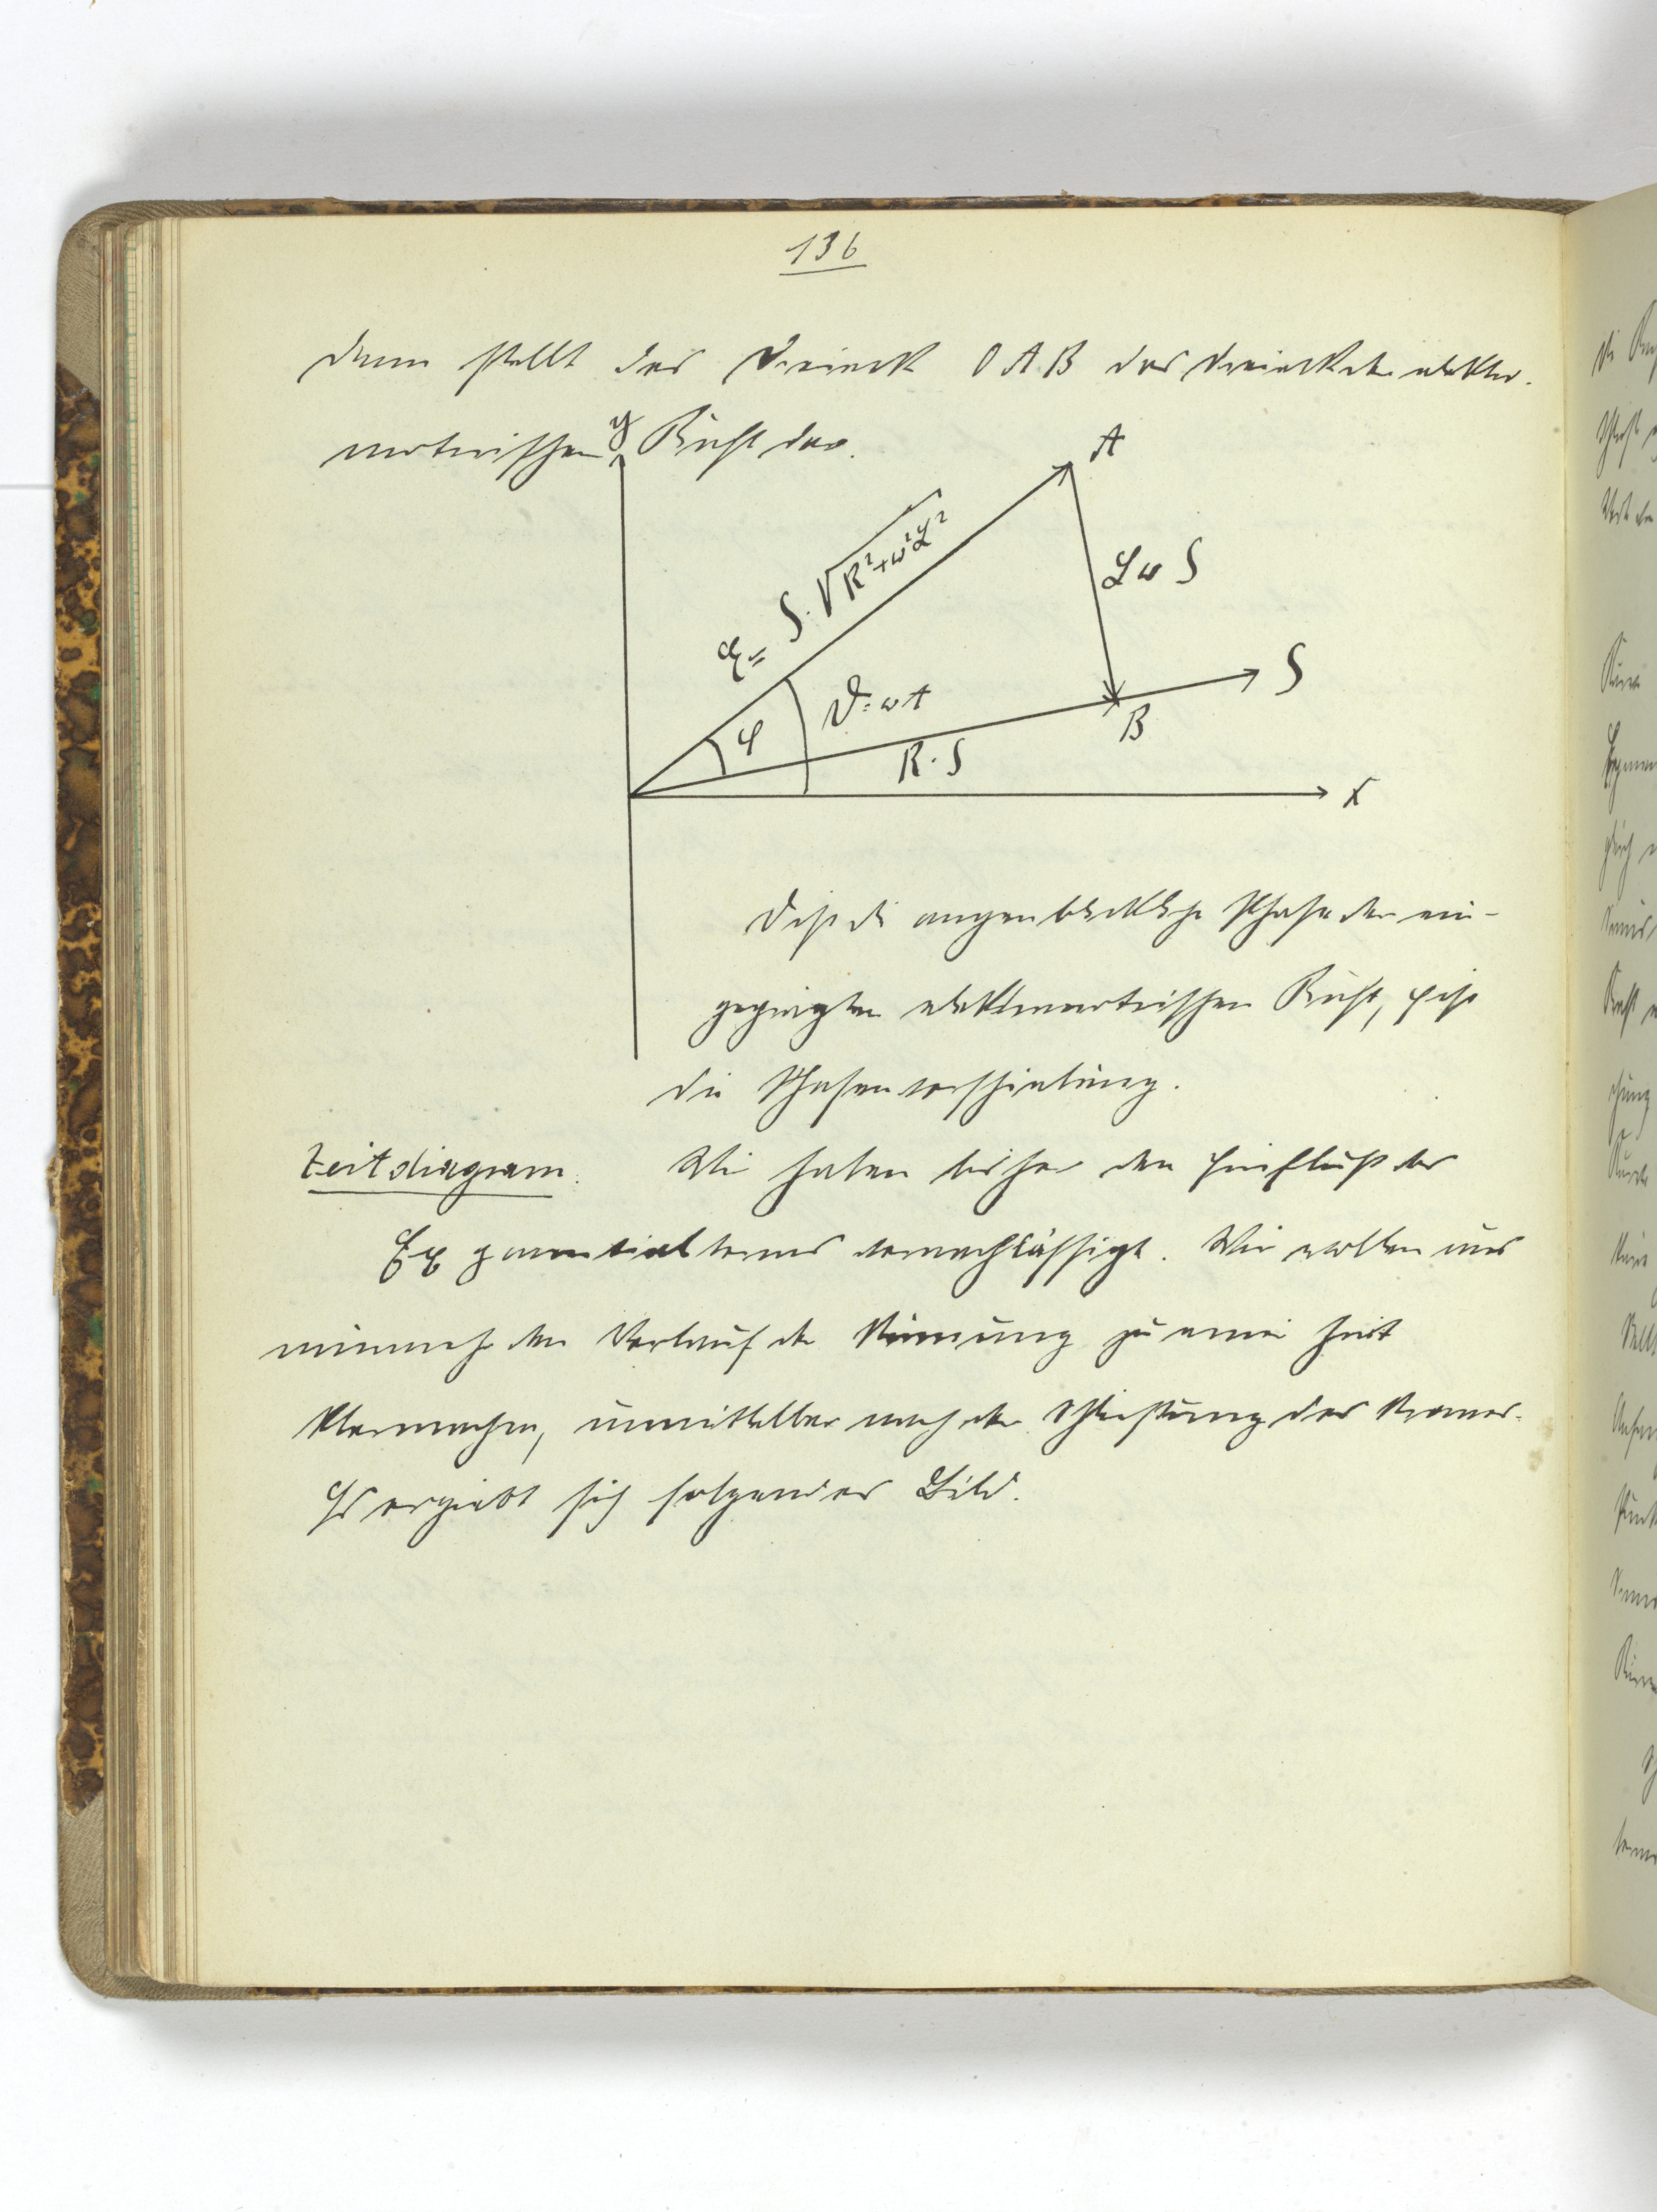 136
dann stellt das Dreieck OAB das Dreieck der elektro-
motorischen Kraft dar.
y
A
E = J · √R²+ω²L²
Lω J
J
ϑ = ωt
φ
B
R · J
x
ϑ ist die augenblickliche Phase der ein-
geprägten elektromotorischen Kraft, φ ist
die Phasenverschiebung.
Zeitdiagram. Wir haben bisher den Einfluß des
Exponentialterms vernachlässigt. Wir wollen uns
nunmehr den Verlauf der Strömung zu einer Zeit
klarmachen, unmittelbar nach der Schließung des Stromes.
Es ergiebt sich folgendes Bild.